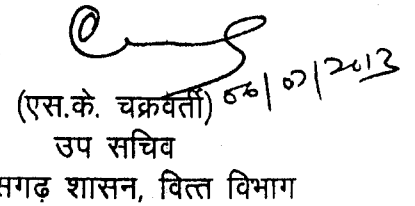 (एस.के. चक्रवर्ती) 06/07/2013
उप सचिव
सगढ़ शासन, वित्त विभाग